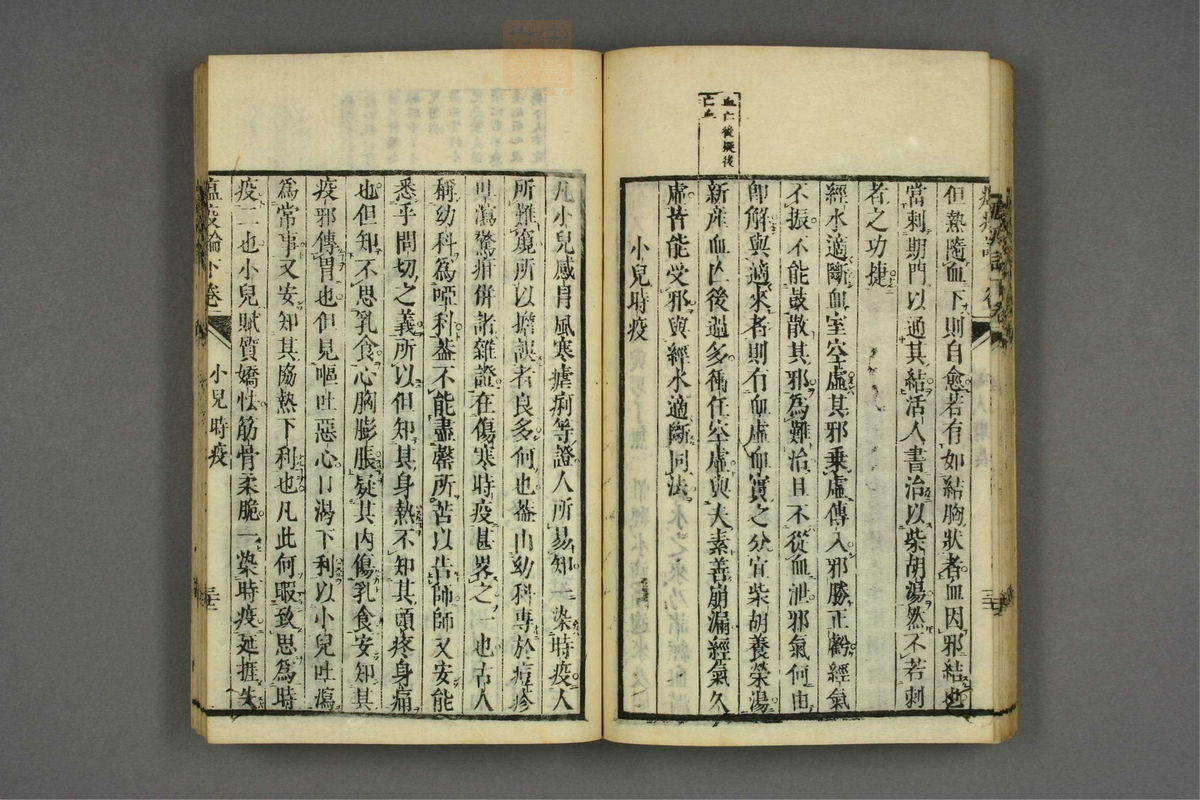 血亡後疑後
亡血
但熱隨血下則自愈若有如結胸狀者血因邪結也
當刺期門以通其結活人書治以柴胡湯然不若刺
者之功捷
經水適斷血室空虛其邪乗虛傳入邪勝正虧經氣
不振不能鼓散其邪為難治且不從血泄邪氣何由
即解與適來者則有血虛血實之分宜柴胡養榮湯
新産血亡後過多衝任空虛與夫素善崩漏經氣久
虛皆能受邪與經水適斷同法
小兒時疫
凡小兒感冒風寒瘧痢等證人所易知一染時疫人
所難窺所以擔誤者良多何也葢由幼科專於痘疹
吐瀉驚疳併諸雜證在傷寒時疫甚畧之一也古人
稱幼科為啞科葢不能盡罄所苦以告師師又安能
悉乎問切之義所以但知其身熱不知其頭疼身痛
也但知不思乳食心胸膨脹疑其内傷乳食安知其
疫邪傳胃也但見嘔吐惡心口渴下利以小兒吐瀉
為常事又安知其協熱下利也凡此何暇致思為時
疫二也小兒賦質嬌怯筋骨柔脆一染時疫延捱失
瘟疫論下卷
小兒時疫